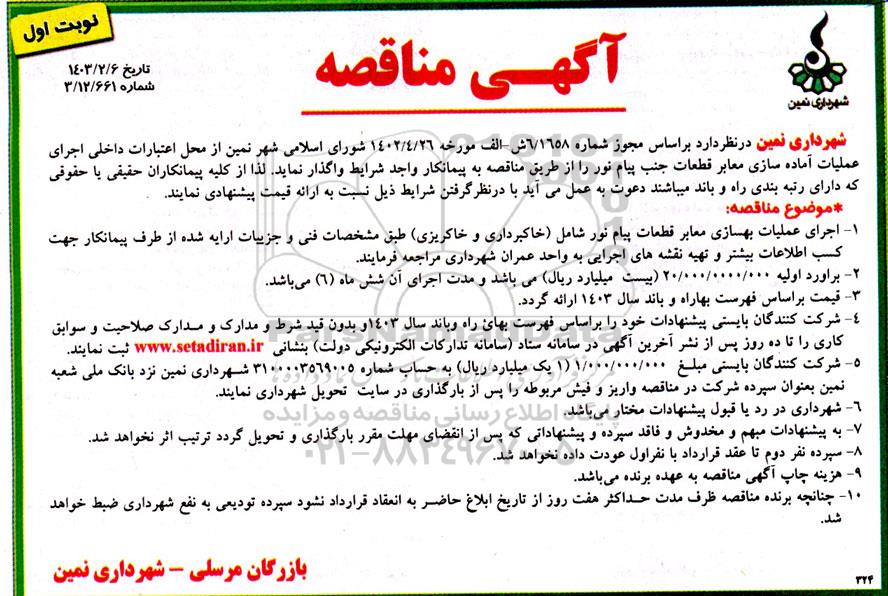 نوبت اول
آگهی مناقصه
تاریخ ۱۴۰۳/۲/۶
شماره ۳/۱۲/۶۶۱
شهرداری نمین
شهرداری نمین درنظردارد براساس مجوز شماره ۶/۱۶۵۸ش-الف مورخه ۱۴۰۲/۴/۲۶ شورای اسلامی شهر نمین از محل اعتبارات داخلی اجرای
عملیات آماده سازی معابر قطعات جنب پیام نور را از طریق مناقصه به پیمانکار واجد شرایط واگذار نماید. لذا از کلیه پیمانکاران حقیقی یا حقوقی
که دارای رتبه بندی راه و باند میباشند دعوت به عمل می آید با درنظرگرفتن شرایط ذیل نسبت به ارائه قیمت پیشنهادی نمایند.
*موضوع مناقصه:
۱- اجرای عملیات بهسازی معابر قطعات پیام نور شامل (خاکبرداری و خاکریزی) طبق مشخصات فنی و جزییات ارایه شده از طرف پیمانکار جهت
کسب اطلاعات بیشتر و تهیه نقشه های اجرایی به واحد عمران شهرداری مراجعه فرمایند.
۲- براورد اولیه ۲۰/۰۰۰/۰۰۰۰/۰۰۰ (بیست میلیارد ریال) می باشد و مدت اجرای آن شش ماه (۶) می‌باشد.
۳- قیمت براساس فهرست بهاراه و باند سال ۱۴۰۳ ارائه گردد.
۴- شرکت کنندگان بایستی پیشنهادات خود را براساس فهرست بهائ راه وباند سال ۱۴۰۳و بدون قید شرط و مدارک و مدارک صلاحیت و سوابق
کاری را تا ده روز پس از نشر آخرین آگهی در سامانه ستاد (سامانه تدارکات الکترونیکی دولت) بنشانی www.setadiran.ir ثبت نمایند.
۵- شرکت کنندگان بایستی مبلغ ۱/۰۰۰/۰۰۰/۰۰۰ (۱ یک میلیارد ریال) به حساب شماره ۳۱۰۰۰۰۳۵۶۹۰۰۵ شهرداری نمین نزد بانک ملی شعبه
نمین بعنوان سپرده شرکت در مناقصه واریز و فیش مربوطه را پس از بارگذاری در سایت تحویل شهرداری نمایند.
۶- شهرداری در رد یا قبول پیشنهادات مختار می‌باشد.
۷- به پیشنهادات مبهم و مخدوش و فاقد سپرده و پیشنهاداتی که پس از انقضای مهلت مقرر بارگذاری و تحویل گردد ترتیب اثر نخواهد شد.
۸- سپرده نفر دوم تا عقد قرارداد با نفراول عودت داده نخواهد شد.
۹- هزینه چاپ آگهی مناقصه به عهده برنده می‌باشد.
۱۰- چنانچه برنده مناقصه ظرف مدت حداکثر هفت روز از تاریخ ابلاغ حاضر به انعقاد قرارداد نشود سپرده تودیعی به نفع شهرداری ضبط خواهد
شد.
بازرگان مرسلی - شهرداری نمین
۳۲۴
پایگاه اطلاع رسانی مناقصه و مزایده